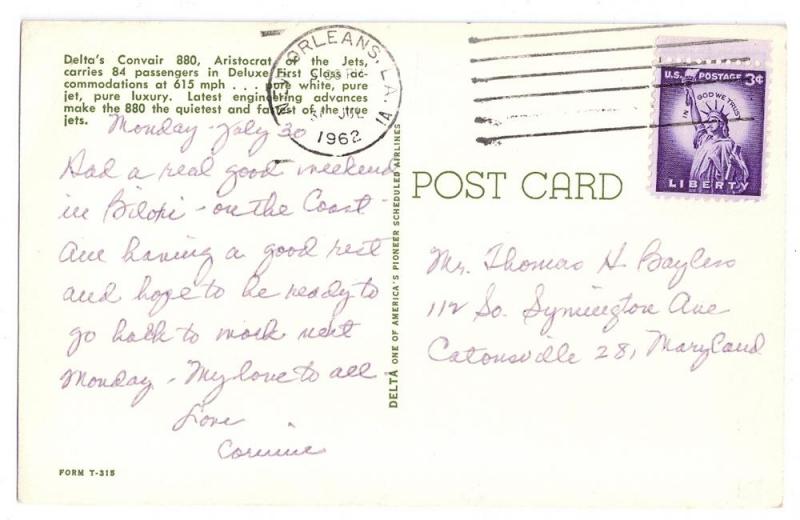 Delta's Convair 880, Aristocrat of the Jets,
carries 84 passengers in Deluxe First Class ac-
commodations at 615 mph . . . pure white, pure
jet, pure luxury. Latest engineering advances
make the 880 the quietest and fastest of the true
jets.
Monday - July 30
Had a real good weekend
in Biloxi - on the Coast -
Am having a good rest
and hope to be ready to
go back to work next
Monday - My love to all
Love
Corinne
FORM T-315
DELTA ONE OF AMERICA'S PIONEER SCHEDULED AIRLINES
NEW ORLEANS, LA.
JUL
1962
POST CARD
U.S. POSTAGE 3¢
IN GOD WE TRUST
LIBERTY
Mr. Thomas H Bayless
112 So. Symington Ave
Catonsville 28, Maryland